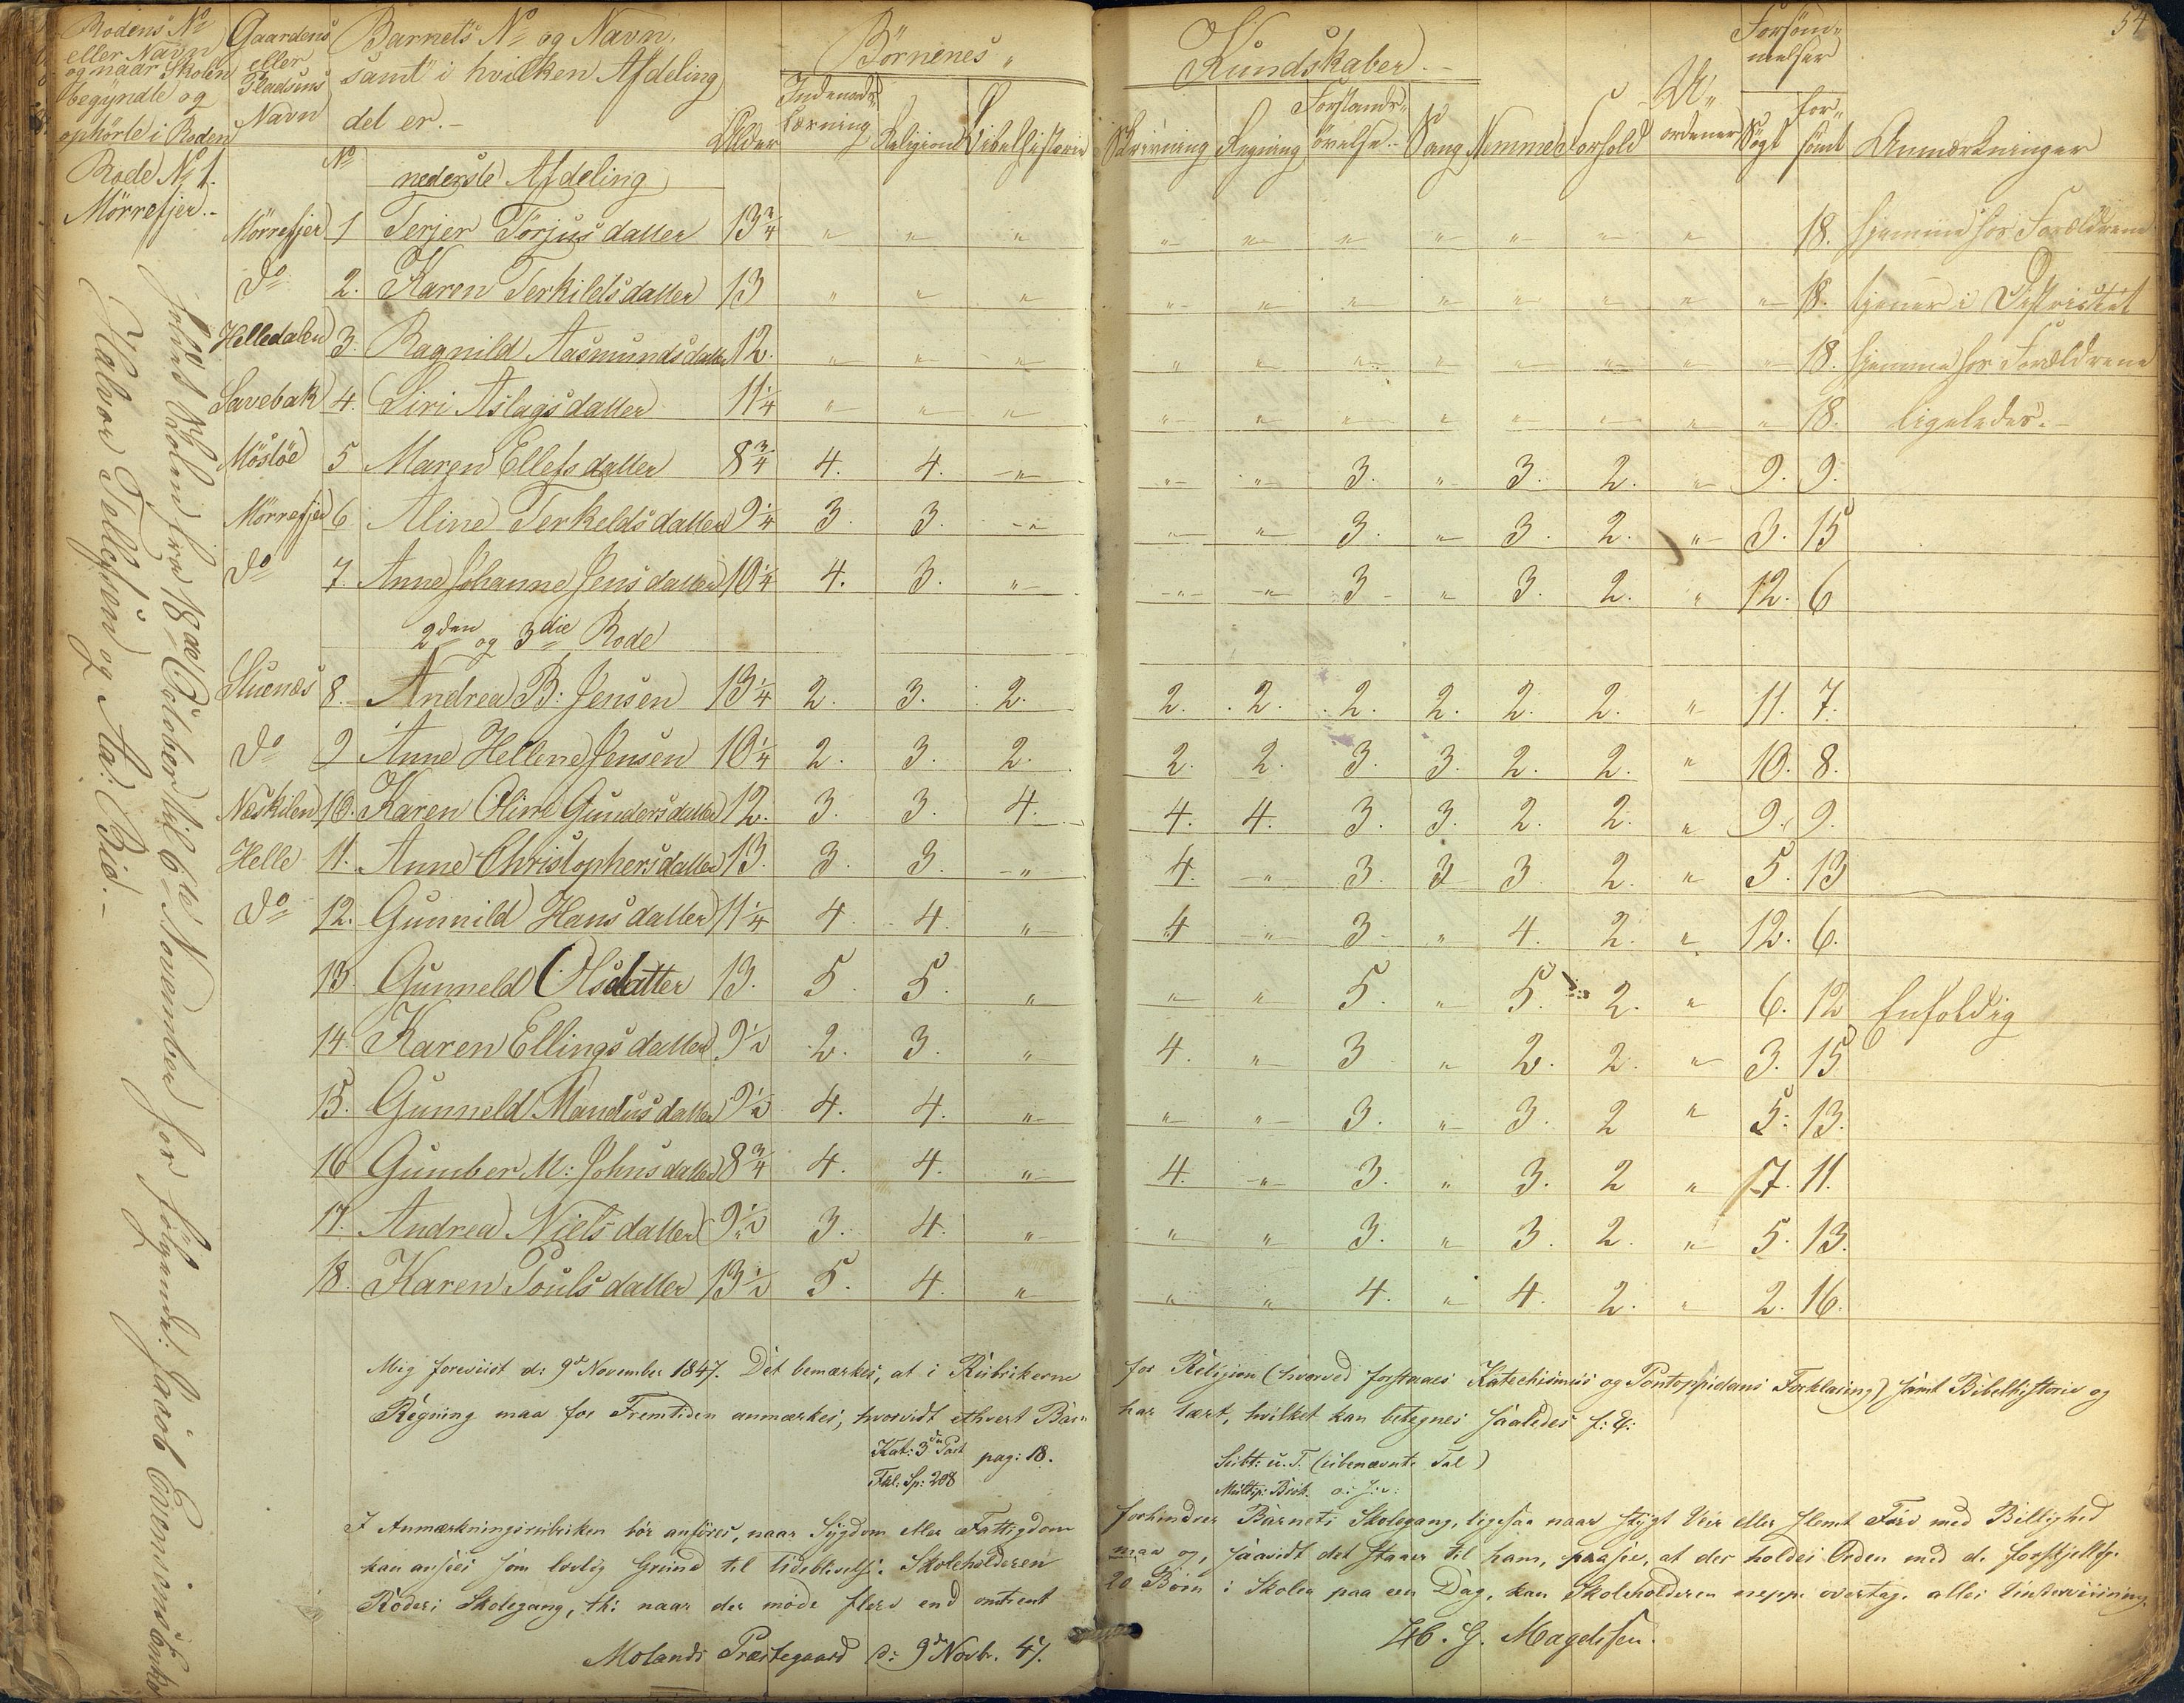 54
Rodens No eller Navn og naar Skolen begyndte og ophörte i Roden
Gaardens eller Pladsens Navn
Barnets No og Navn, samt i hvilken Afdeling del er.-
Alder
Börnenes Kundskaber.-
Indenads læsning
Religion
Bibelhistorie
Skrivning
Regning
Forstands-övelse.-
Sang
Nemme
Forhold
U-ordener
Forsöm-melser
Sögt
for-sömt
Anmærkninger
Rode No 1. Mörrefjer.-
No
nederste Afdeling
Mörrefjer 1 Terjer Törjusdatter 13 3/4 " " " " " " " " " " 18. hjemme hos Forældrene
Do 2. Karen Terkildsdatter 13 " " " " " " " " " " " 18. tjener i Destrictet
Helledalen 3. Ragnild Aasmundsdatter 12. " " " " " " " " " " " 18. hjemme hos Forældrene
Savebak 4. Siri Aslagsdatter 11 1/4 " " " " " " " " " " " 18. ligeledes.-
Mösloe 5 Maren Ellefsdatter 8 3/4 4. 4. " " " 3. " 3. 2. " 9. 9.
Mörrefjer 6 Aline Terkeldsdatter 9 1/4 3. 3. " " " 3. " 3. 2. " 3. 15
Do 7. Anne Johanne Jensdatter 10 1/4 4. 3. " " " 3 " 3. 2. " 12. 6
2den og 3die Rode
Stuenæs 8. Andrea B: Jensen 13 1/4 2. 3. 2. 2. 2. 2. 2. 2. 2. " 11. 7.
Do 9 Anne Hellene Jensen 10 1/4 2. 3. 2. 2. 2. 3. 3. 2. 2. " 10. 8.
Neskilen 10. Karen Oline Gundersdatter 12. 3. 3. 4. 4. 4. 3. 3. 2. 2. " 9. 9.
Helle 11. Anne Christophersdatter 13. 3. 3. " 4. " 3. 3 3. 2. " 5. 13
Do 12. Gunnild Hansdatter 11 1/4 4. 4. " 4 " 3 " 4. 2. " 12. 6.
13. Gunneld Olsdatter 13. 5. 5. " " " 5. " 5. 2. " 6. 12 Enfoldig
14. Karen Ellingsdatter 9 1/2 2. 3. " 4. " 3 " 2. 2. " 3. 15
15. Gunneld Mandusdatter 9 1/2 4. 4. " " " 3. " 3. 2 " 5. 13.
16 Gumber M: Johnsdatter 8 3/4 4. 4. " 4. " 3. " 3. 2 " 7. 11.
17. Andrea Nielsdatter 9 1/2 3. 4. " " " 3. " 3. 2. " 5. 13.
18. Karen Poulsdatter 13 1/2 5. 4. " " " 4. " 4. 2. " 2. 16.
holdt Skolen fra 18de October til 6te November hos fölgende: Jacob Evensens Enke
Halvor Tellefsen og Aa: Bie.-
Mig foreviist d: 9de November 1847. Det bemærkes, at i Rubrikerne for Religion (hvorved forstaaes Katechismus og Pontoppidans Forklaring) samt Bibelhistorie og
Regning maa for Fremtiden anmærkes, hvorvidt ethvert Barn har lært, hvilket kan betegnes saaledes f: E:
Kat: 3die Part pag: 18. Subt: u. T. (ubenævnte Tal)
Fkl: Sp: 208 Multip: Brök. o: s: v:
I Anmærkningsrubriken bör anföres, naar Sygdom eller Fattigdom forhindrer Barnets Skolegang, ligesaa naar stygt Veir eller slemt Före med Billighed
kan ansees som lovlig Grund til Udeblivelse. Skoleholderen maa og, saavidt det staaer til ham, paasee, at der holdes Orden med de forskjellige
Roders Skolegang, thi naar der möde flere end omtrent 20 Börn i Skolen paa een Dag, kan Skoleholderen neppe overtage alles Underviisning.
Molands Præstegaard d: 9de Novbr. 47. H. J. Magelssen.